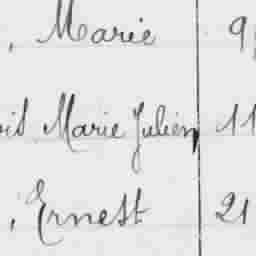 , Marie 9
Marie Julien 11
, Ernest 21